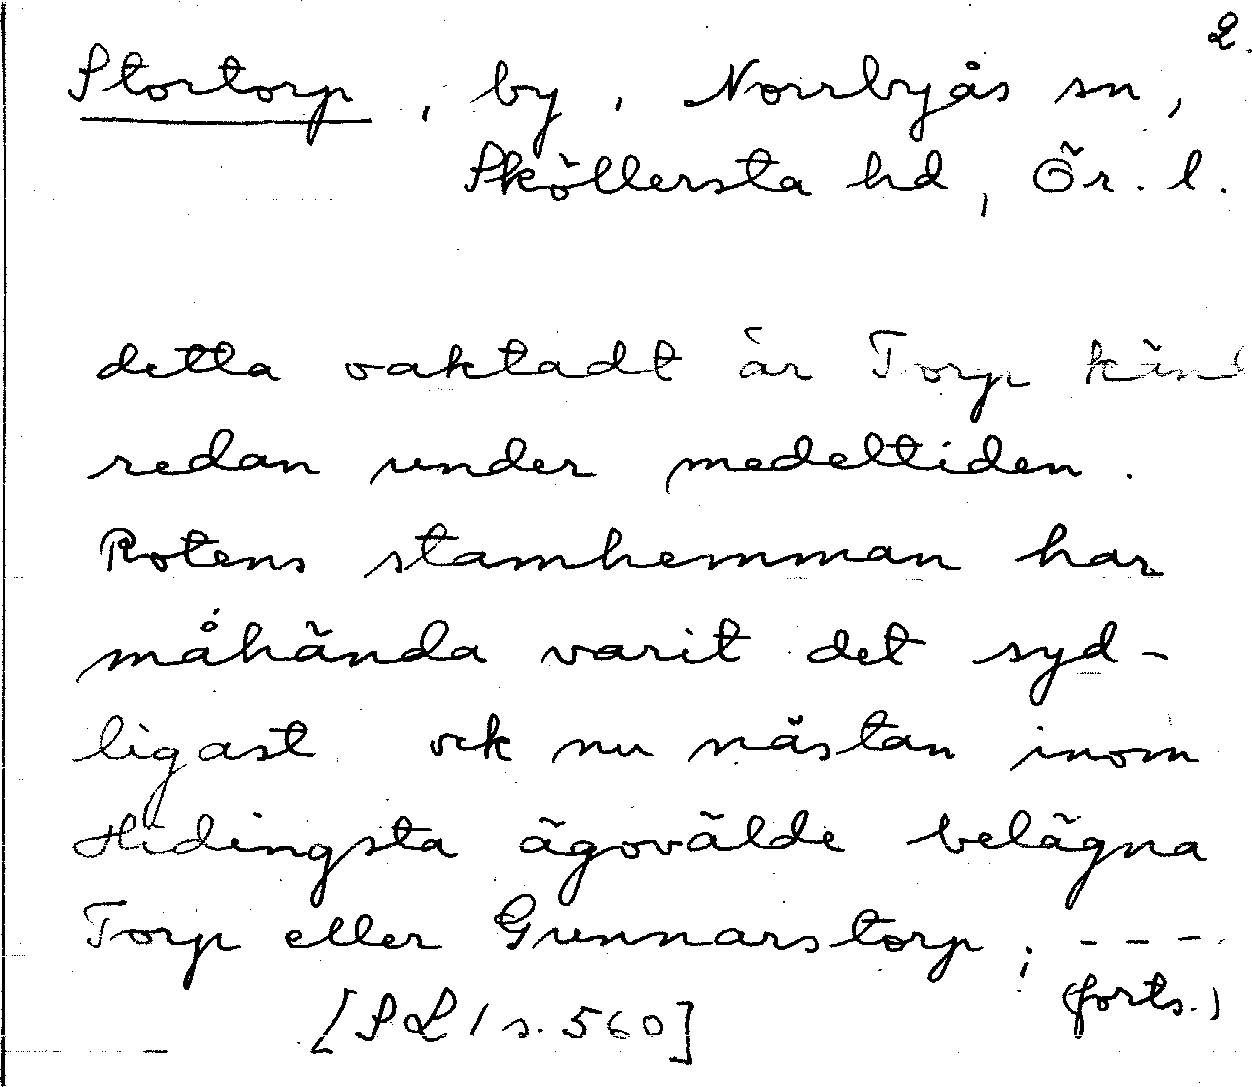 2.
Stortorp, by, Norrbyås sn,
Sköllersta hd, Ör. l.
detta oaktadt är Torp känd
redan under medeltiden.
Rotens stamhemman har
måhända varit det syd-
ligast ock nu nästan inom
Hidingsta ägovälde belägna
Torp eller Gunnarstorp; - - -
(forts.)
[SL 1 s. 560]